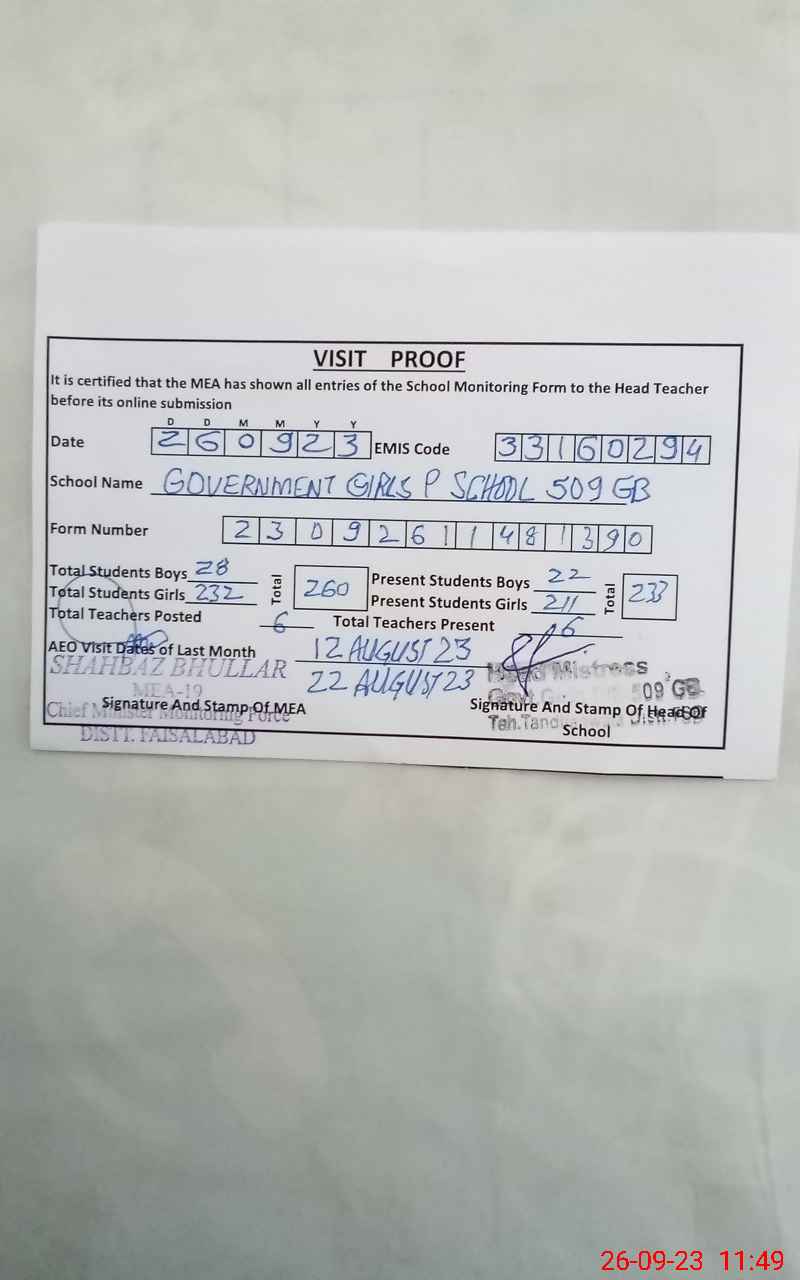 VISIT PROOF
It is certified that the MEA has shown all entries of the School Monitoring Form to the Head Teacher
before its online submission
D D M M Y Y
Date 260923 EMIS Code 33160294
School Name GOVERNMENT GIRLS P SCHOOL 509 GB
Form Number 23092611481390
Total Students Boys 28 Total 260 Present Students Boys 22 Total 233
Total Students Girls 232 Present Students Girls 211
Total Teachers Posted 6 Total Teachers Present 6
AEO Visit Dates of Last Month 12 AUGUST 23
22 AUGUST 23
SHAHBAZ BHULLAR
MEA-19
Chief Minister Monitoring Force
DISTT. FAISALABAD
Signature And Stamp Of MEA
Head Mistress
509 GB
Teh.
Signature And Stamp Of Head Of
School
26-09-23 11:49